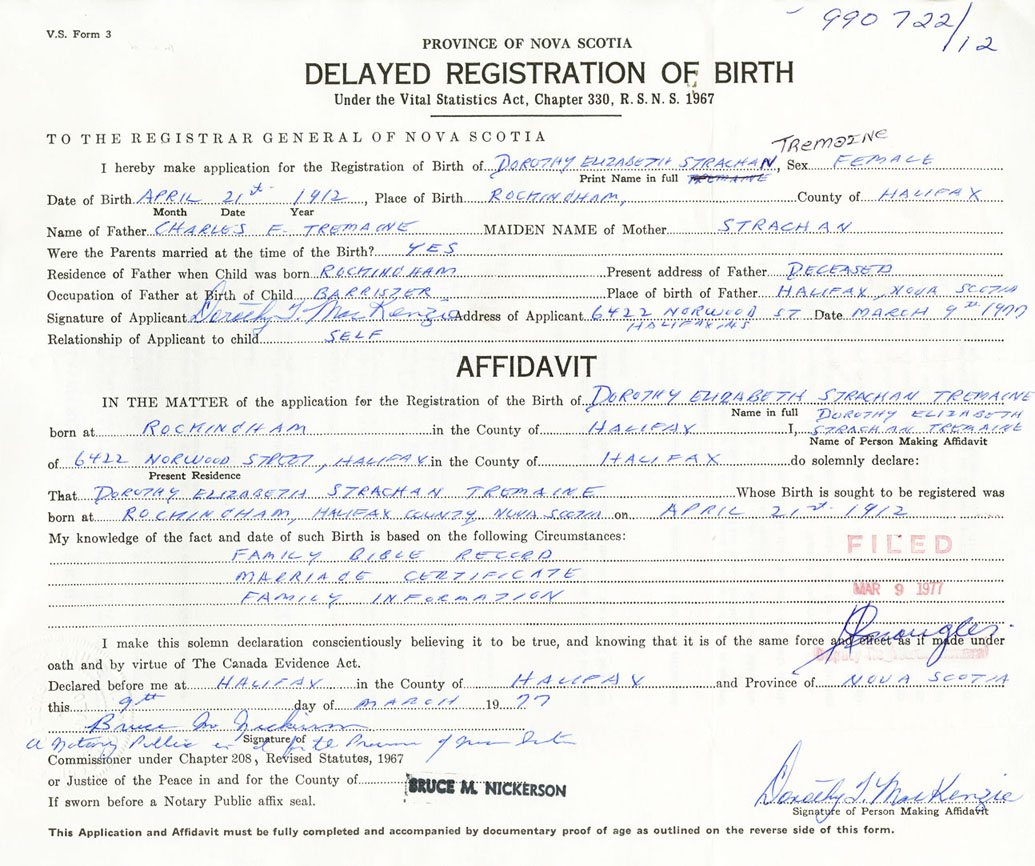 990722/12
V.S. Form 3
PROVINCE OF NOVA SCOTIA
DELAYED REGISTRATION OF BIRTH
Under the Vital Statistics Act, Chapter 330, R. S. N. S. 1967
TO THE REGISTRAR GENERAL OF NOVA SCOTIA
TREMAINE
I hereby make application for the Registration of Birth of DOROTHY ELIZABETH STRACHAN, Sex FEMALE
Print Name in full TREMAINE
Date of Birth APRIL 21st 1912, Place of Birth ROCKINGHAM, County of HALIFAX
Month Date Year
Name of Father CHARLES F. TREMAINE MAIDEN NAME of Mother STRACHAN
Were the Parents married at the time of the Birth? YES
Residence of Father when Child was born ROCKINGHAM Present address of Father DECEASED
Occupation of Father at Birth of Child BARRISTER Place of birth of Father HALIFAX, NOVA SCOTIA
Signature of Applicant Dorothy T. MacKenzie Address of Applicant 6422 NORWOOD ST Date MARCH 9th 1977
HALIFAX, NS
Relationship of Applicant to child SELF
AFFIDAVIT
IN THE MATTER of the application for the Registration of the Birth of DOROTHY ELIZABETH STRACHAN TREMAINE
Name in full DOROTHY ELIZABETH
born at ROCKINGHAM in the County of HALIFAX I, STRACHAN TREMAINE
Name of Person Making Affidavit
of 6422 NORWOOD STREET, HALIFAX in the County of HALIFAX do solemnly declare:
Present Residence
That DOROTHY ELIZABETH STRACHAN TREMAINE Whose Birth is sought to be registered was
born at ROCKINGHAM, HALIFAX COUNTY, NOVA SCOTIA on APRIL 21st 1912
My knowledge of the fact and date of such Birth is based on the following Circumstances:
FAMILY BIBLE RECORD
FILED
MARRIAGE CERTIFICATE
MAR 9 1977
FAMILY INFORMATION
I make this solemn declaration conscientiously believing it to be true, and knowing that it is of the same force and effect as if made under
oath and by virtue of The Canada Evidence Act.
Declared before me at HALIFAX in the County of HALIFAX and Province of NOVA SCOTIA
this 9th day of MARCH 1977
Bruce M. Nickerson
Signature of
A Notary Public in & for the Province of Nova Scotia
Commissioner under Chapter 208, Revised Statutes, 1967
or Justice of the Peace in and for the County of BRUCE M. NICKERSON
If sworn before a Notary Public affix seal.
Dorothy T. MacKenzie
Signature of Person Making Affidavit
This Application and Affidavit must be fully completed and accompanied by documentary proof of age as outlined on the reverse side of this form.